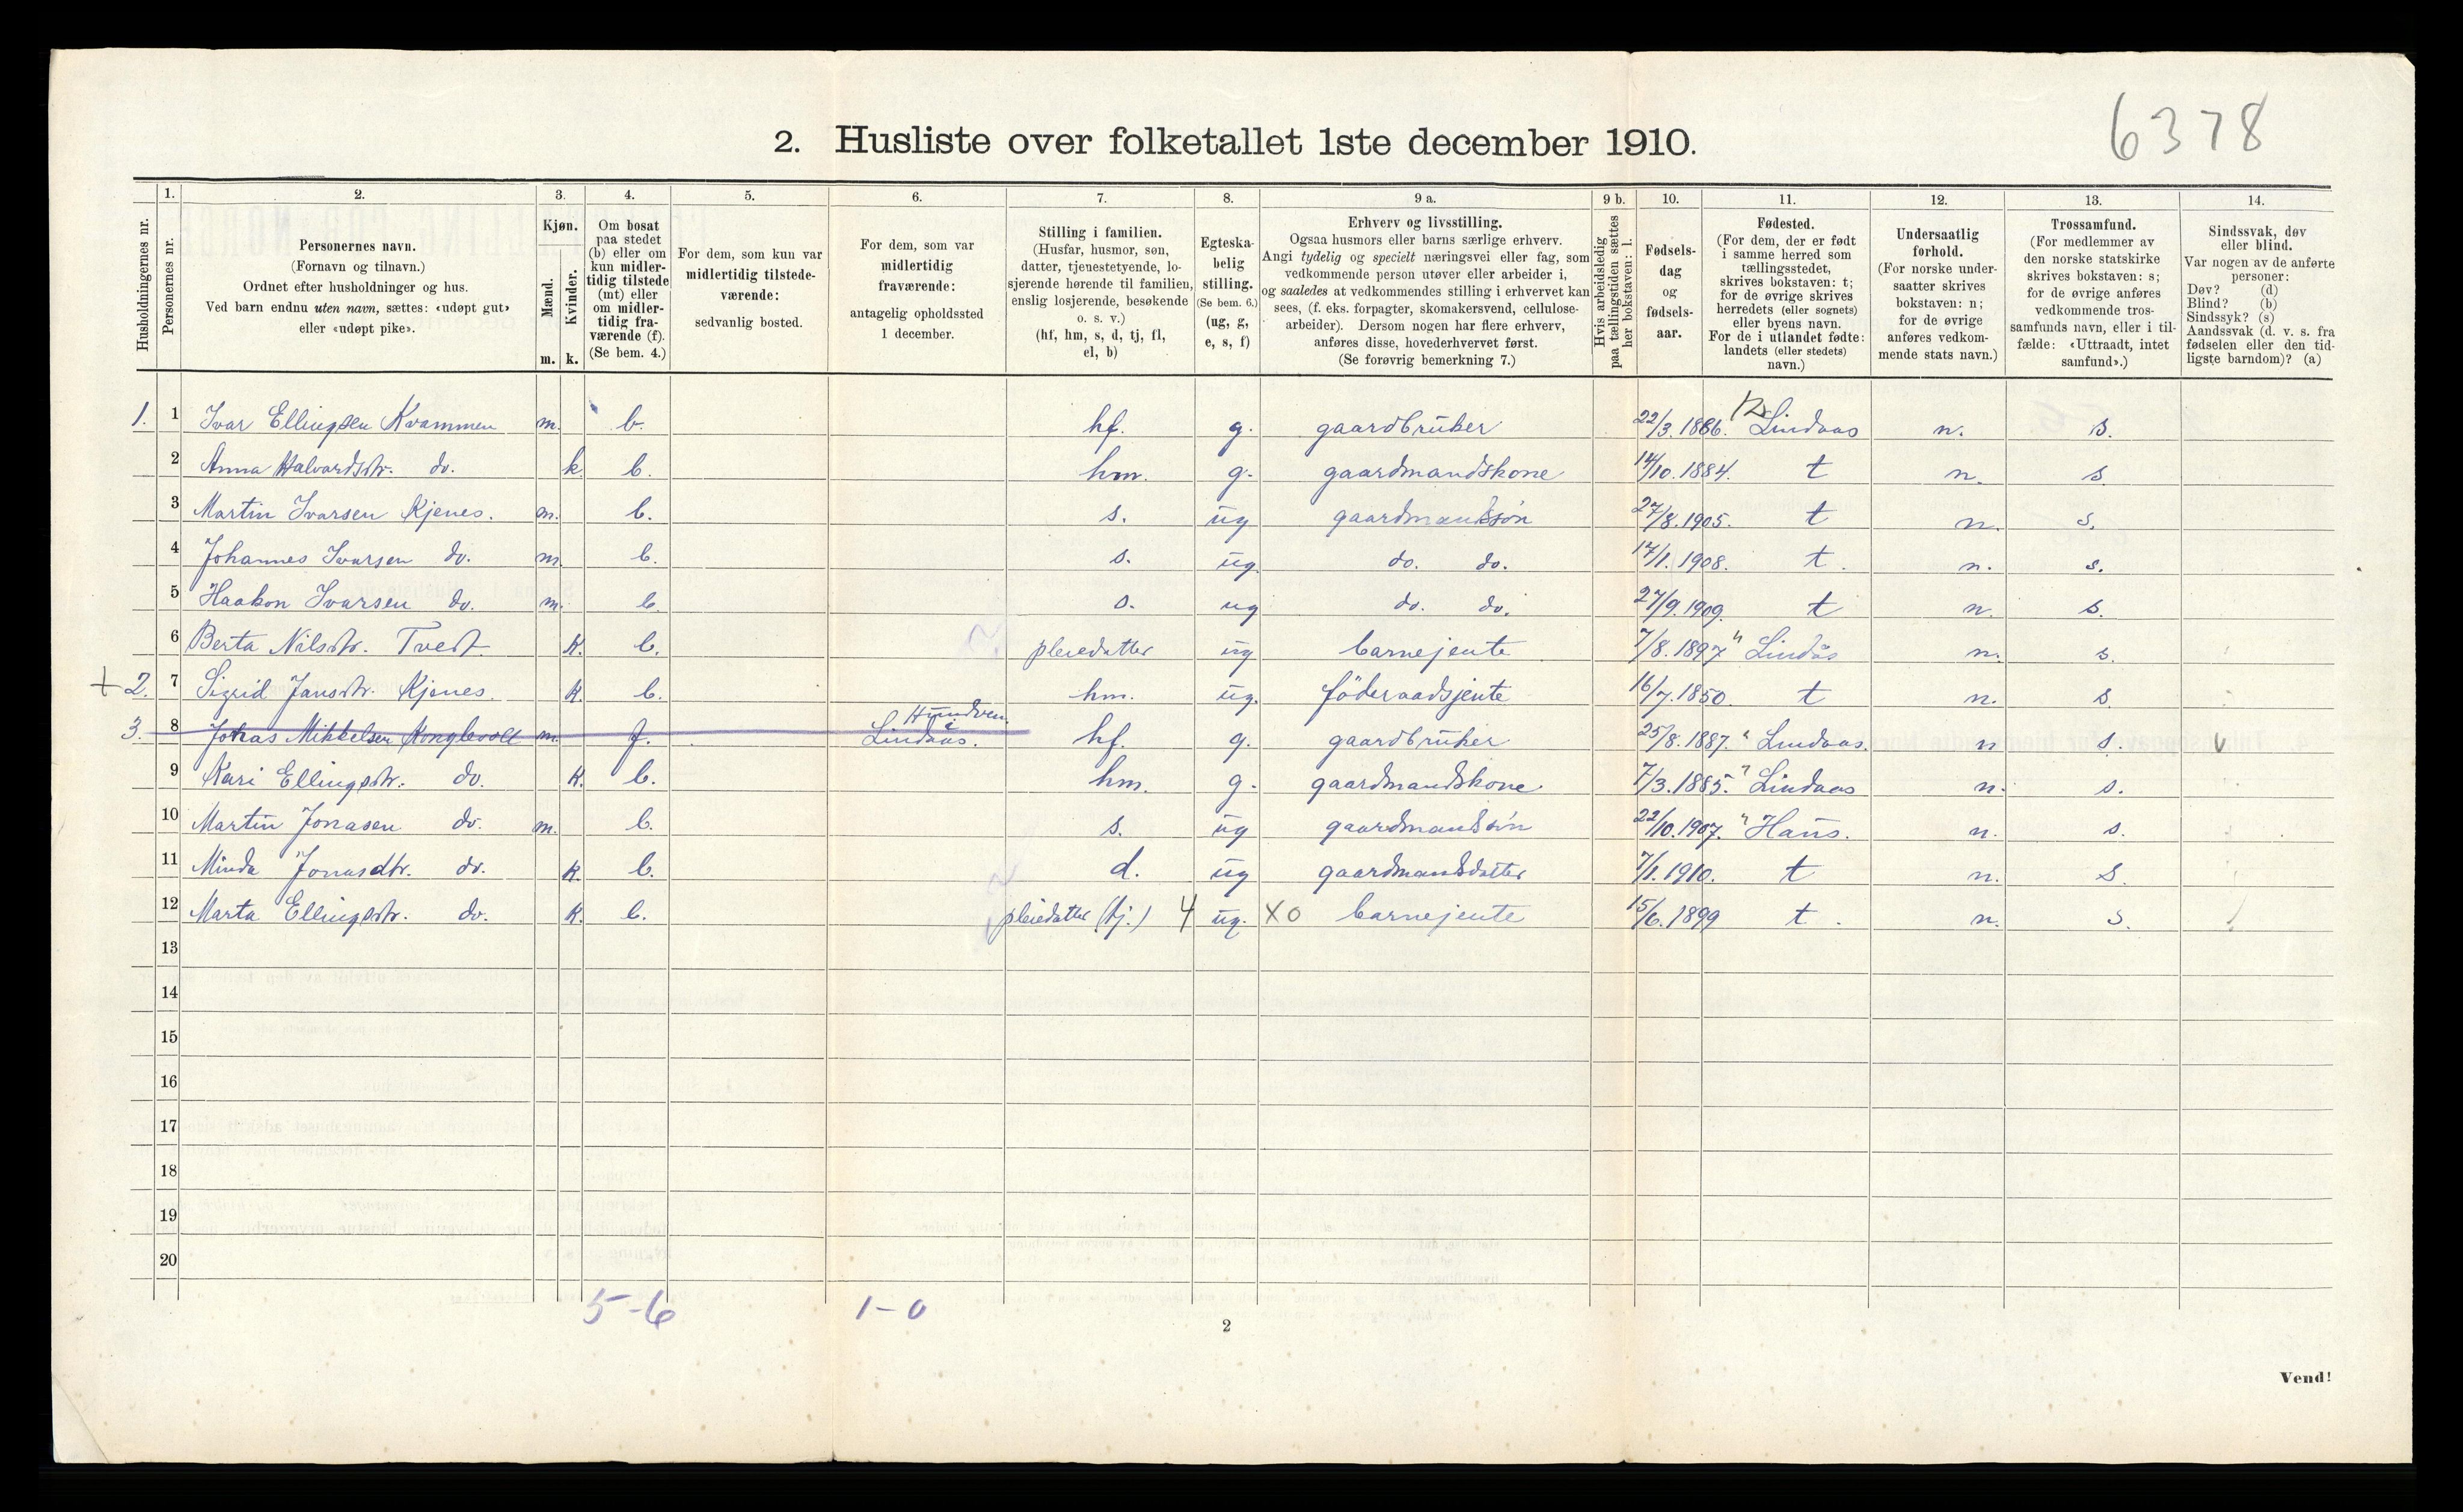 6378
2. Husliste over folketallet 1ste december 1910.
Husholdningernes nr.
1.
Personernes nr.
2.
Personernes navn.
(Fornavn og tilnavn.)
Ordnet efter husholdninger og hus.
Ved barn endnu uten navn, sættes: «udøpt gut»
eller «udøpt pike».
3.
Kjøn.
Mænd.
Kvinder.
m. k.
4.
Om bosat
paa stedet
(b) eller om
kun midler-
tidig tilstede
(mt) eller
om midler-
tidig fra-
værende (f).
(Se bem. 4.)
5.
For dem, som kun var
midlertidig tilstede-
værende:
sedvanlig bosted.
6.
For dem, som var
midlertidig
fraværende:
antagelig opholdssted
1 december.
7.
Stilling i familien.
(Husfar, husmor, søn,
datter, tjenestetyende, lo-
sjerende hørende til familien,
enslig losjerende, besøkende
o. s. v.)
(hf, hm, s, d, tj, fl,
el, b)
8.
Egteska-
belig
stilling.
(Se bem. 6.)
(ug, g,
e, s, f)
9 a.
Erhverv og livsstilling.
Ogsaa husmors eller barns særlige erhverv.
Angi tydelig og specielt næringsvei eller fag, som
vedkommende person utøver eller arbeider i,
og saaledes at vedkommendes stilling i erhvervet kan
sees, (f. eks. forpagter, skomakersvend, cellulose-
arbeider). Dersom nogen har flere erhverv,
anføres disse, hovederhvervet først.
(Se forøvrig bemerkning 7.)
9 b.
Hvis arbeidsledig
paa tællingstiden sættes
her bokstaven: l.
10.
Fødsels-
dag
og
fødsels-
aar.
11.
Fødested.
(For dem, der er født
i samme herred som
tællingsstedet,
skrives bokstaven: t;
for de øvrige skrives
herredets (eller sognets)
eller byens navn.
For de i utlandet fødte:
landets (eller stedets)
navn.)
12.
Undersaatlig
forhold.
(For norske under-
saatter skrives
bokstaven: n;
for de øvrige
anføres vedkom-
mende stats navn.)
13.
Trossamfund.
(For medlemmer av
den norske statskirke
skrives bokstaven: s;
for de øvrige anføres
vedkommende tros-
samfunds navn, eller i til-
fælde: «Uttraadt, intet
samfund».)
14.
Sindssvak, døv
eller blind.
Var nogen av de anførte
personer:
Døv? (d)
Blind? (b)
Sindssyk? (s)
Aandssvak (d. v. s. fra
fødselen eller den tid-
ligste barndom)? (a)
1. 1 Ivar Ellingsen Kvammen m. b. hf. g. gaardbruker 22/3.1886. Lindaas n. s.
2 Anna Halvardsdtr. do. k b. hm. g. gaardmandskone 14/10.1884. t n. s.
3 Martin Ivarsen Kjenes. m. b. s. ug gaardmandssøn 27/8.1905. t n. s.
4 Johannes Ivarsen do. m. b. s. ug. do. do. 17/1.1908. t. n. s.
5 Haakon Ivarsen do. m. b. s. ug do. do. 27/9.1909. t n. s.
6 Berta Nilsdtr. Tveit k. b. pleiedatter ug barnejente 7/8.1897 " Lindås n. s.
+ 2. 7 Sigrid Jansdtr. Kjenes. k. b. hm. ug. føderaadsjente 16/7.1850. t n. s.
3. 8 Jonas Mikkelsen Konglevoll m. f. Hundven i Lindaas. hf. g. gaardbruker 25/8.1887. " Lindaas. n s. v
9 Kari Ellingsdtr. do. k. b. hm. g. gaardmandskone 7/3.1885. " Lindaas n. s.
10 Martin Jonasen do. m. b. s. ug gaardmandssøn 22/10.1907. " Haus. n. s.
11 Minda Jonasdtr. do. k. b. d. ug gaardmandsdatter 7/1.1910. t n. s.
12 Marta Ellingsdtr. do. k. b. pleiedatter (tj.) 4 ug. X0 barnejente 15/6.1899 t. n. s.
13
14
15
16
17
18
19
20
5-6 1-0
2
Vend!